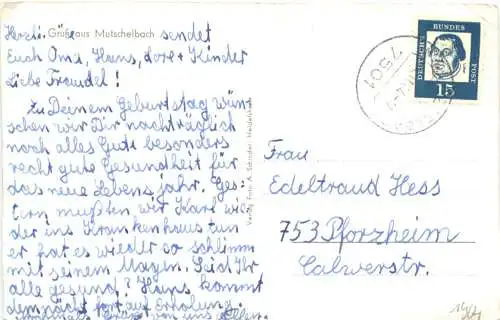 Grüße aus Mutschelbach
Herzli. Grüße sendet
Euch Oma, Hans, Lore + Kinder
Liebe Traudel!
Zu Deinem Geburtstag wün-
schen wir Dir nachträglich
noch alles Gute besonders
recht gute Gesundheit für
das neue Lebensjahr. Ges-
tern mußten wir Karl wie
der ins Krankenhaus tun
er hat es wieder so schlimm
mit seinem Magen. Seid Ihr
alle gesund? Hans kommt
demnächst fort auf Erholung.
Grüße von uns allen.
Verlag
7501
DEUTSCHE BUNDESPOST
15
Frau
Edeltraud Hess
753 Pforzheim
Calwerstr.